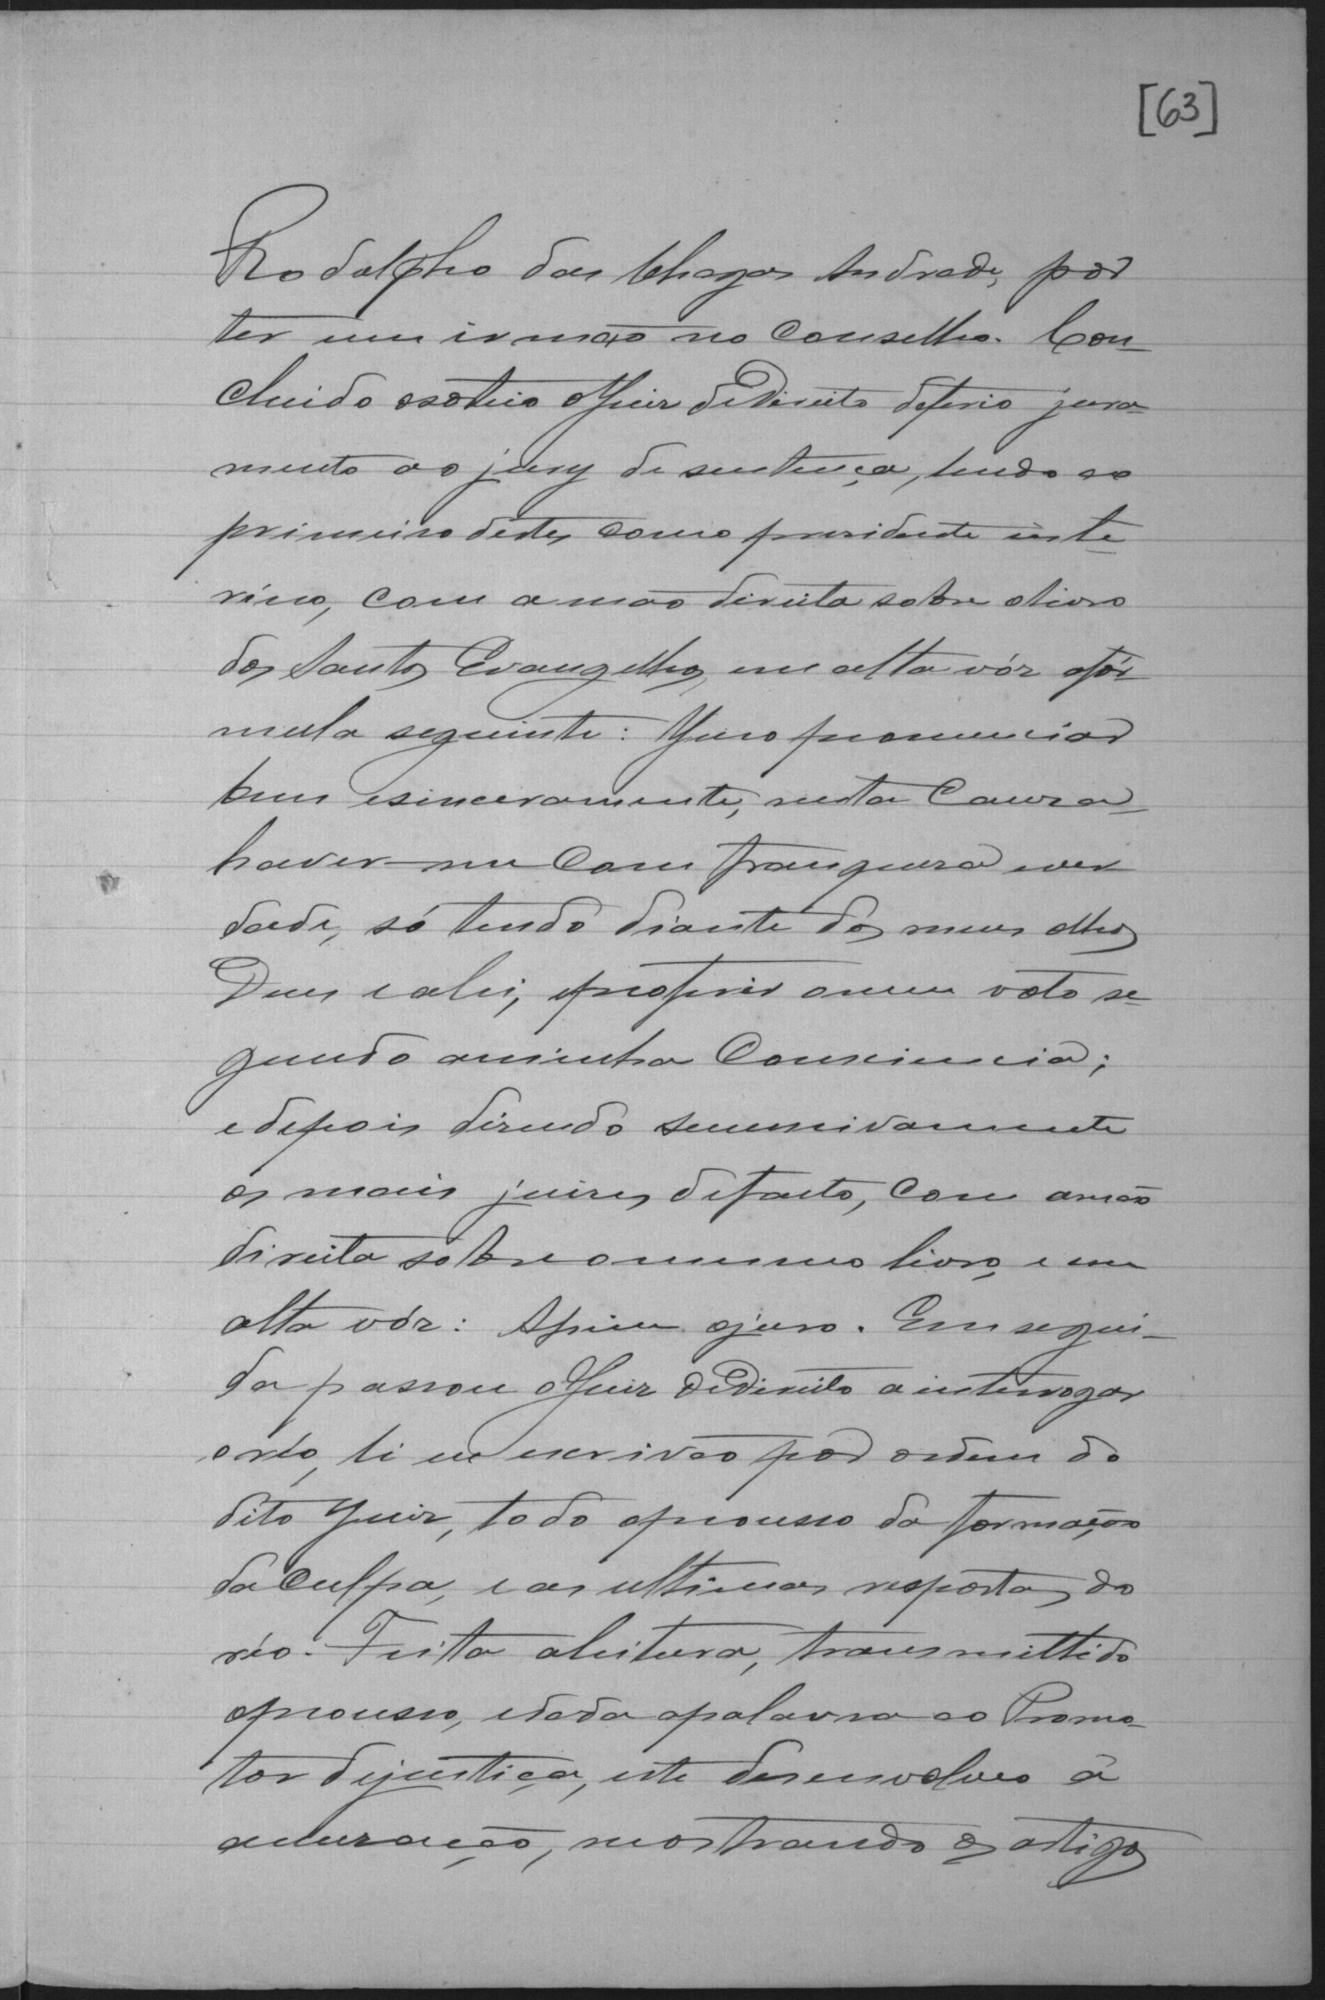 [63]
Rodolpho das Chagas Andrade, por
ter um irmão no Conselho. Con-
cluido o sorteio o Juiz de Direito deferio jura-
mento ao jury de sentença, lendo ao
primeiro destes como presidente inte-
rino, com a mão direita sobre o livro
dos Santos Evangelhos, em alta vóz a fór-
mula seguinte: Juro pronunciar
bem e sinceramente, nesta Causa-
haver-me com franqueza e ver
dade, só tendo diante dos meus olhos
Deus e a lei, e proferir o meu voto se-
gundo a minha Consciencia;
e depois dizendo successivamente
os mais juizes de facto, com a mão
direita sobre o mesmo livro, e em
alta vóz: Assim o juro. Em segui-
da passou o Juiz de Direito a interrogar
o réo, li eu escrivão por ordem do
dito Juiz, todo o processo da formação
da Culpa, e as ultimas respostas do
réo. Feita a leitura, transmittido
o processo, e dada a palavra ao Promo-
tor de justiça, este desenvolveo a
accusação, mostrando os artigos